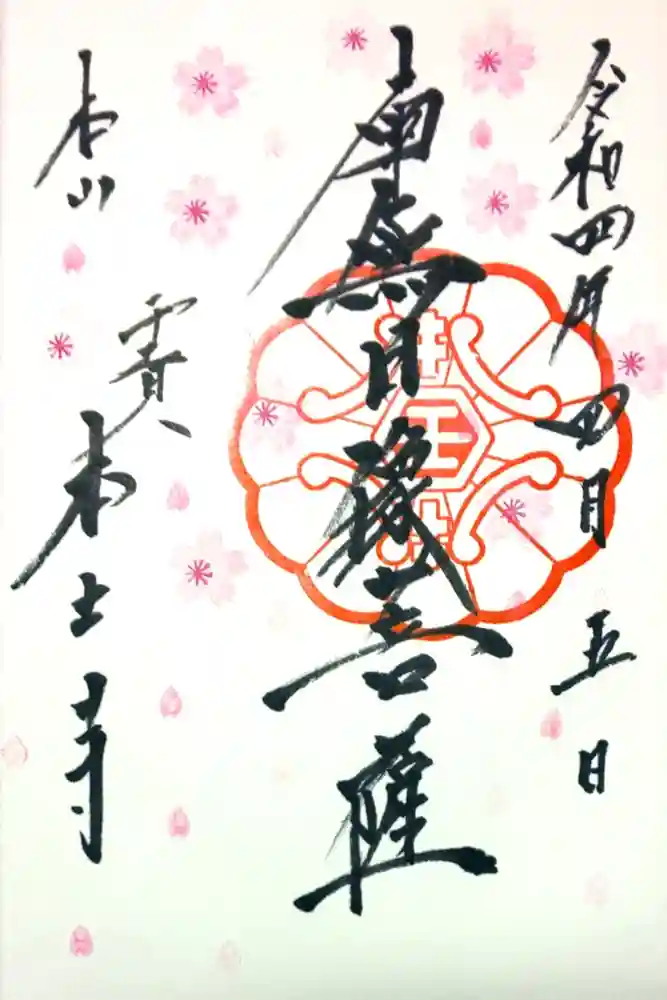 令和四年四月五日
南無日像菩薩
本山
本土寺